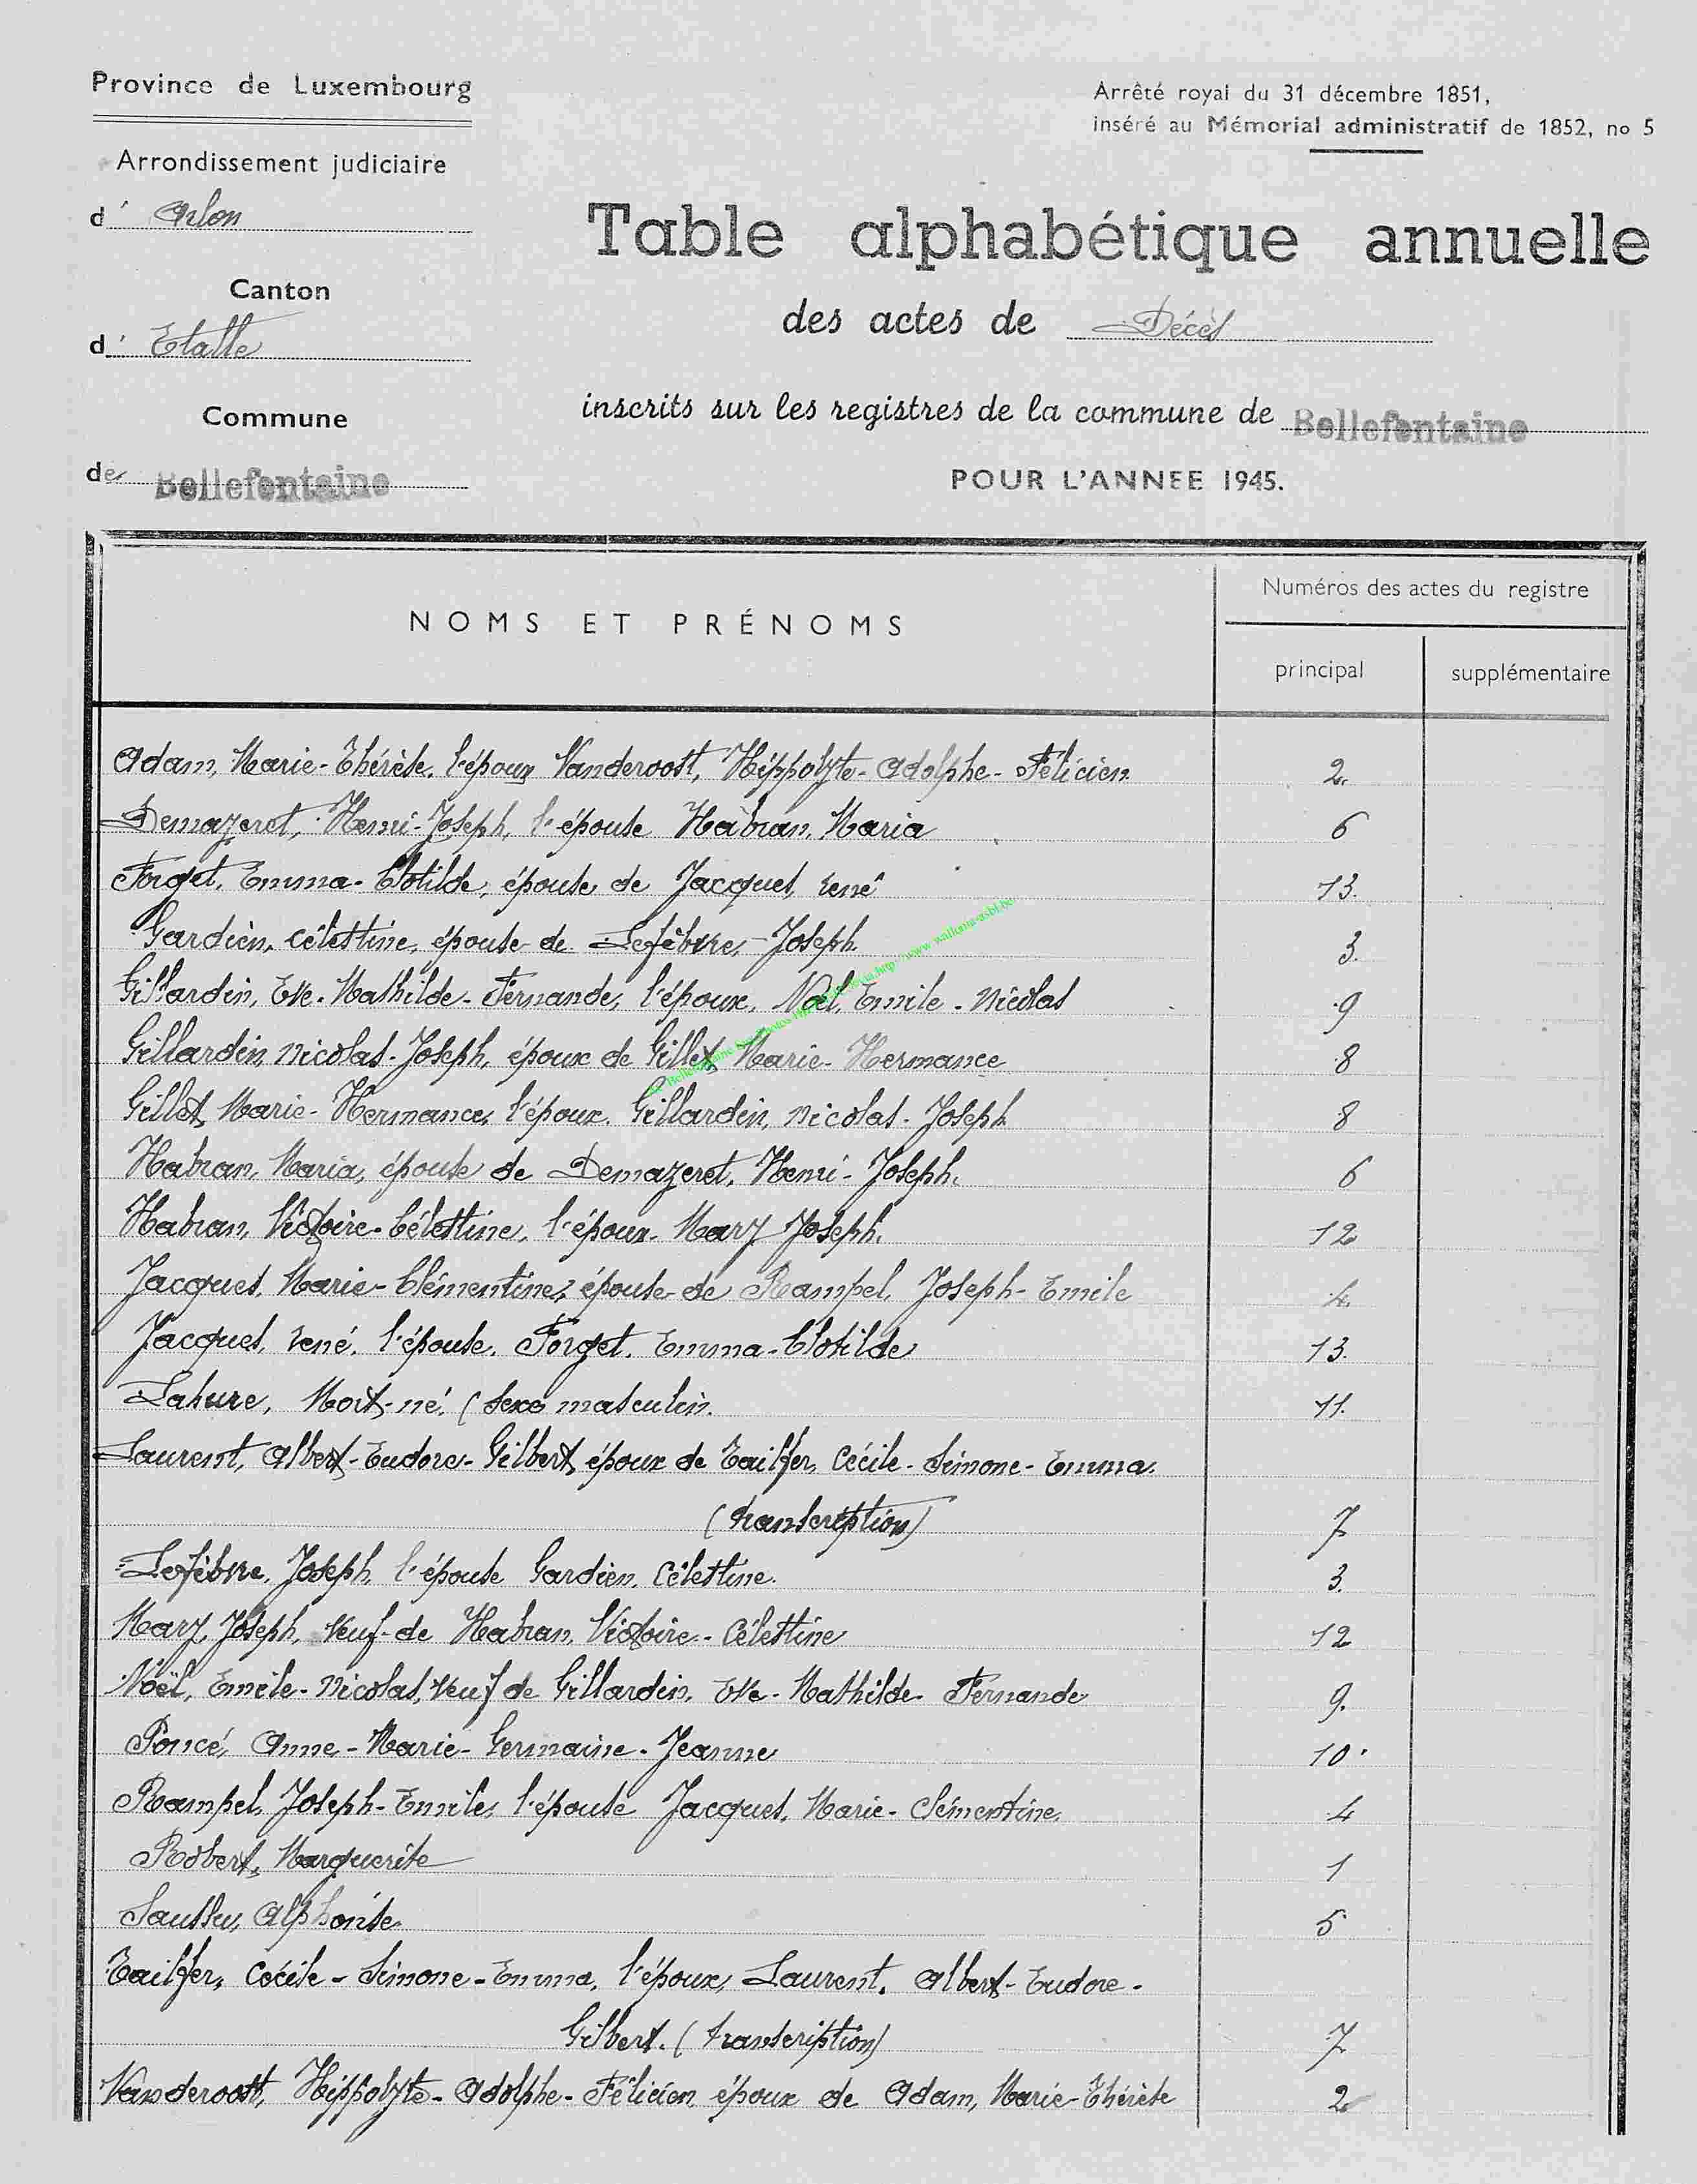 Province de Luxembourg
Arrêté royal du 31 décembre 1851,
inséré au Mémorial administratif de 1852, no 5
Arrondissement judiciaire
d' Arlon
Table alphabétique annuelle
Canton
des actes de Décès
d' Etalle
inscrits sur les registres de la commune de Bellefontaine
Commune
de Bellefontaine
POUR L'ANNEE 1945.
NOMS ET PRÉNOMS
Numéros des actes du registre
principal
supplémentaire
Adam, Marie-Thérèse, l'époux Vanderoost, Hippolyte-Adolphe-Félicien 2
Demazeret, Henri-Joseph, l'épouse Habran, Maria 6
Forget, Emma-Clotilde, épouse de Jacques, René 13.
Gardien, Célestine, épouse de Lefèbvre, Joseph 3.
Gillardin, Eve-Mathilde-Fernande, l'époux, Noël, Emile-Nicolas 9
Gillardin, Nicolas-Joseph, époux de Gillet, Marie-Hermance 8
Gillet, Marie-Hermance, l'époux, Gillardin, Nicolas-Joseph 8
Habran, Maria, épouse de Demazeret, Henri-Joseph. 6
Habran, Victoire-Célestine, l'époux Mary Joseph. 12
Jacques, Marie-Clémentine, épouse de Rampel, Joseph-Emile 4.
Jacques, René, l'épouse, Forget, Emma-Clotilde 13.
Lahure, Mort-né. (sexe masculin. 11.
Laurent, Albert-Eudore-Gilbert, époux de Tailfer, Cécile-Simone-Emma.
(transcription) 7
Lefèbvre, Joseph, l'épouse Gardien, Célestine. 3.
Mary, Joseph, veuf de Habran, Victoire-Célestine 12
Noël, Emile-Nicolas, veuf de Gillardin, Eve-Mathilde-Fernande 9.
Poncé, Anne-Marie-Germaine-Jeanne 10.
Rampel, Joseph-Emile, l'épouse Jacques, Marie-Clémentine. 4
Robert, Marguerite 1
Alphonse 5
Tailfer, Cécile-Simone-Emma, l'époux, Laurent, Albert-Eudore-
Gilbert. (transcription) 7
Vanderoost, Hippolyte-Adolphe-Félicien époux de Adam, Marie-Thérèse 2